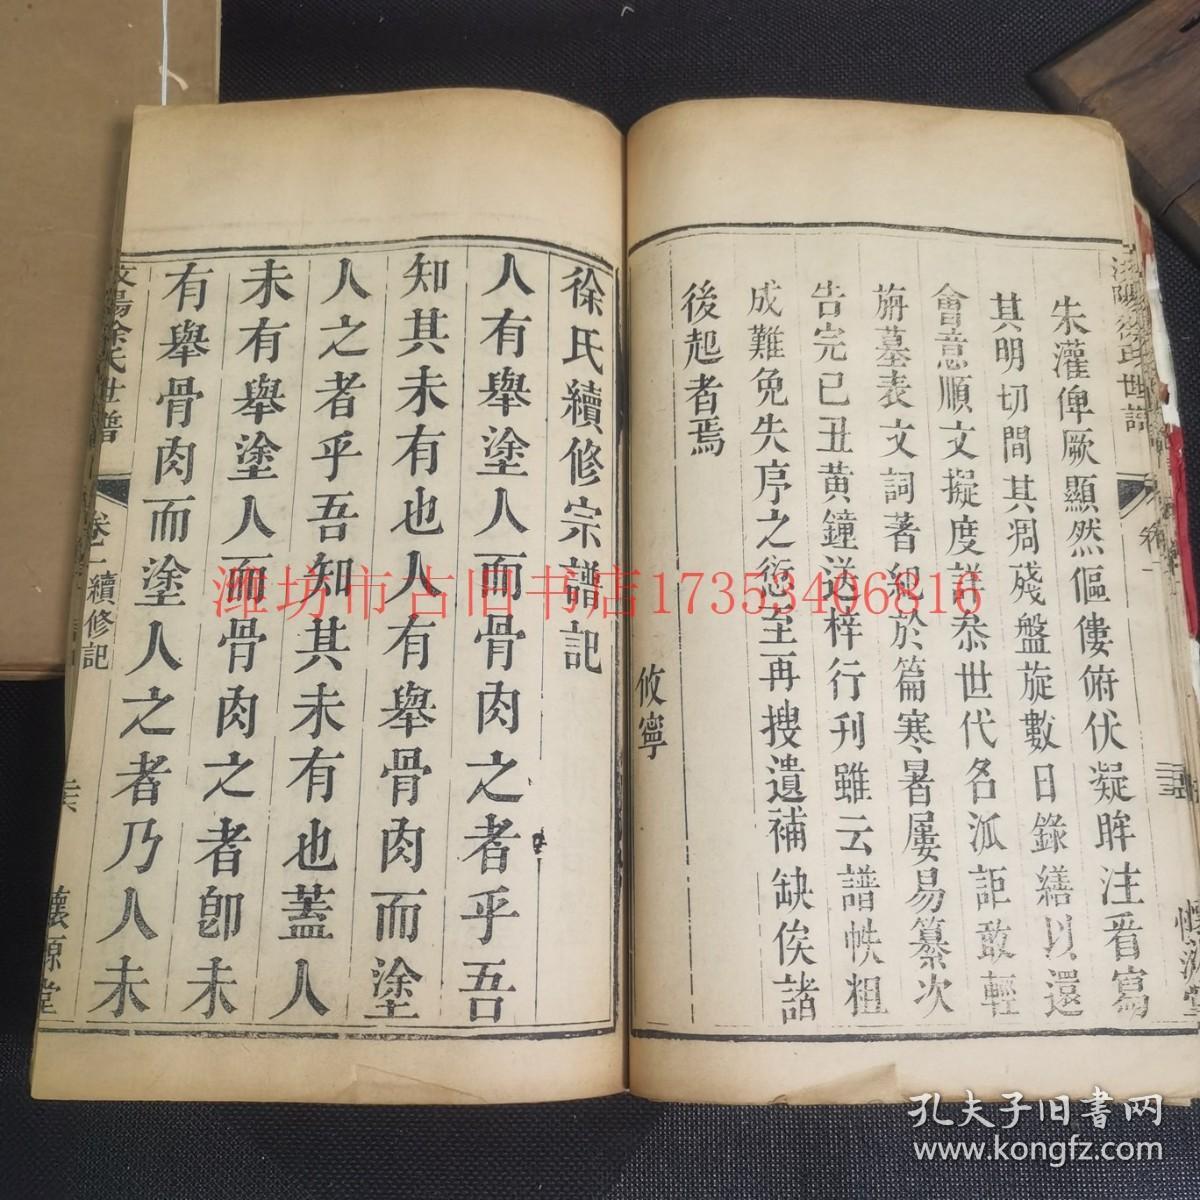 朱灌俾厥顯然傴僂俯伏凝眸注看寫
其明切間其凋殘盤旋數日錄繕以還
會意順文擬度詳叅世代名派詎敢輕
旃墓表文詞著紀於篇寒暑屢易纂次
告完已丑黃鐘送梓行刊雖云譜帙粗
成難免失序之愆至再搜遺補缺俟諸
後起者焉
攸寧
徐氏續修宗譜記
人有舉塗人而骨肉之者乎吾
知其未有也人有舉骨肉而塗
人之者乎吾知其未有也蓋人
未有舉塗人而骨肉之者卽未
有舉骨肉而塗人之者乃人未
徐氏世譜
卷二
續修記
懷源堂
徐氏世譜
卷一
懷源堂
潍坊市古旧书店17353406816
孔夫子旧书网
www.kongfz.com